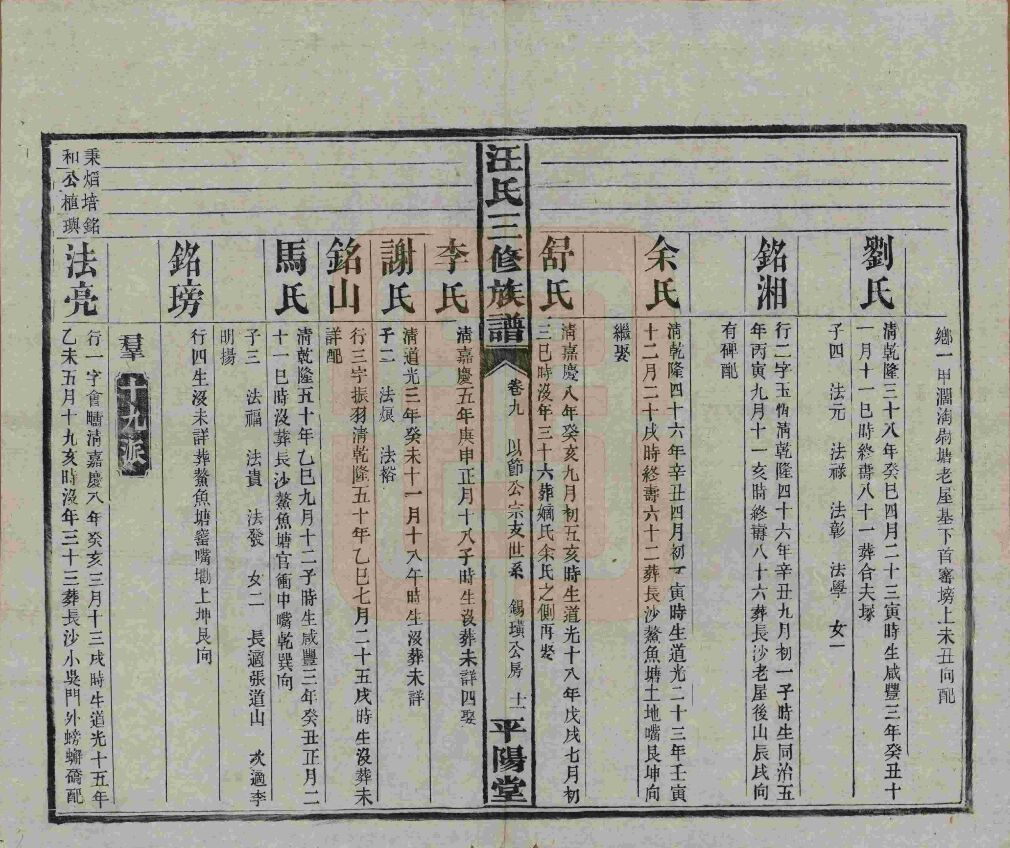 鄉一甲澗灣尉塘老屋基下首窰塝上未丑向配
劉氏
清乾隆三十八年癸巳四月二十三寅時生咸豐三年癸丑十
一月十一巳時終壽八十一葬合夫塚
子四 法元 法祿 法彰 法學 女一
銘湘
行二字玉恆清乾隆四十六年辛丑九月初一子時生同治五
年丙寅九月十一亥時終壽八十六葬長沙老屋後山辰戌向
有碑配
余氏
清乾隆四十六年辛丑四月初一寅時生道光二十三年壬寅
十二月二十戌時終壽六十二葬長沙鰲魚塘土地嘴艮坤向
繼娶
舒氏
清嘉慶八年癸亥九月初五亥時生道光十八年戊戌七月初
三巳時沒年三十六葬嫡氏余氏之側再娶
汪氏三修族譜
卷九 以節公宗支世系 錫璜公房 十一
平陽堂
李氏
清嘉慶五年庚申正月十八子時生沒葬未詳四娶
謝氏
清道光三年癸未十一月十八午時生沒葬未詳
子二 法烺 法裕
銘山
行三字振羽清乾隆五十年乙巳七月二十五戌時生沒葬未
詳配
馬氏
清乾隆五十年乙巳九月十二子時生咸豐三年癸丑正月二
十一巳時沒葬長沙鰲魚塘官衝中嘴乾巽向
子三 法福 法貴 法發 女二 長適張道山 次適李
明揚
銘塝
行四生沒未詳葬鰲魚塘窰嘴墈上坤艮向
羣
十九派
秉熖培銘
和公植璵
法亮
行一字會疇清嘉慶八年癸亥三月十三戌時生道光十五年
乙未五月十九亥時沒年三十三葬長沙小吳門外螃蠏橋配